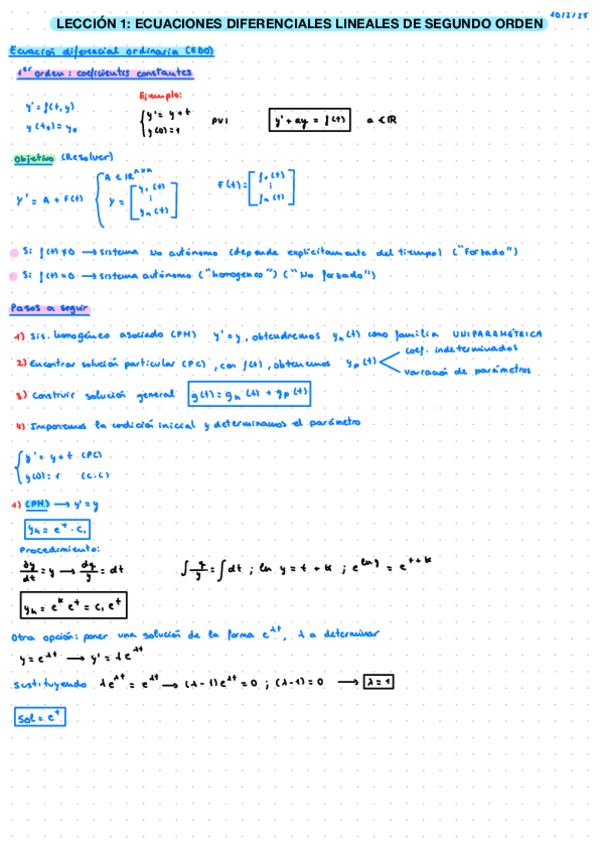 LECCIÓN 1: ECUACIONES DIFERENCIALES LINEALES DE SEGUNDO ORDEN
Ecuación diferencial ordinaria (EDO)
1er orden: coeficientes constantes
Ejemplo:
y' = f(t,y)
y(t₀) = y₀
{ y' = y + t
y(0) = 1
PVI
y' + ay = f(t) a ∈ ℝ
Objetivo (Resolver)
Y' = A + F(t)
{ A ∈ ℝⁿˣⁿ
Y = [ y₁(t) ⋮ yₙ(t) ]
F(t) = [ f₁(t) ⋮ fₙ(t) ]
Si f(t) ≠ 0 → sistema no autónomo (depende explícitamente del tiempo) ("Forzado")
Si f(t) = 0 → sistema autónomo ("homogeneo") ("No forzado")
Pasos a seguir
1) Sis. homogéneo asociado (PH) y' = y, obtendremos yₕ(t) como familia UNIPARAMÉTRICA
2) Encontrar solución particular (PC), con f(t), obtenemos yₚ(t)
coef. indeterminados
variación de parámetros
3) Construir solución general y(t) = yₕ(t) + yₚ(t)
4) Imponemos la condición inicial y determinamos el parámetro
{ y' = y + t (PC)
y(0) = 1 (C.C)
1) (PH) → y' = y
yₕ = eᵗ · c₁
Procedimiento:
dy/dt = y → dy/y = dt
∫ y/y = ∫ dt ; ln y = t + k ; e^(ln y) = e^(t+k)
yₕ = eᵏ eᵗ = c₁ eᵗ
Otra opción: poner una solución de la forma e^(λt), λ a determinar
y = e^(λt) → y' = λe^(λt)
Sustituyendo λe^(λt) = e^(λt) → (λ-1)e^(λt) = 0 ; (λ-1) = 0 → λ = 1
Sol = eᵗ